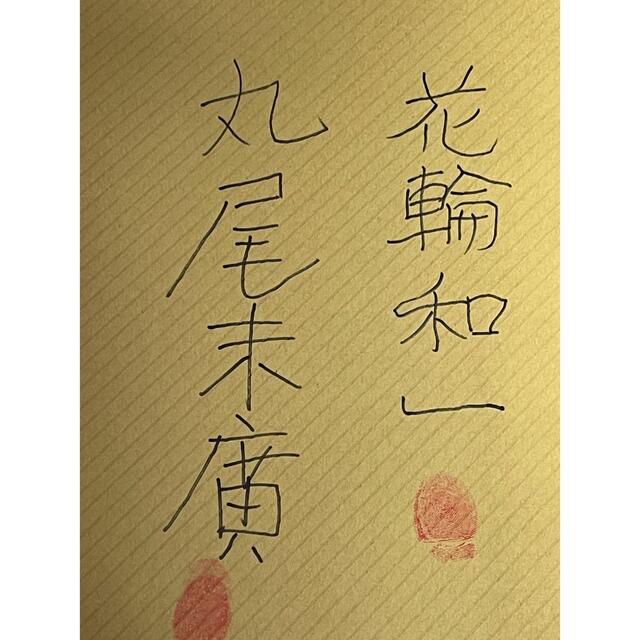 花輪和一
丸尾末廣